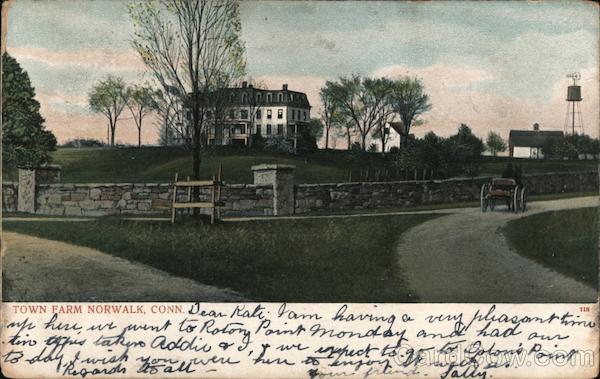 TOWN FARM NORWALK, CONN. Dear Kate. I am having a very pleasant time 118
up here, we went to Roton Point Monday and had our
tin types taken Addie & I, we expect to go to Roton Point
to day I wish you were here to enjoy it with us.
Regards to all - Your friend. Sally.
CardCow.com